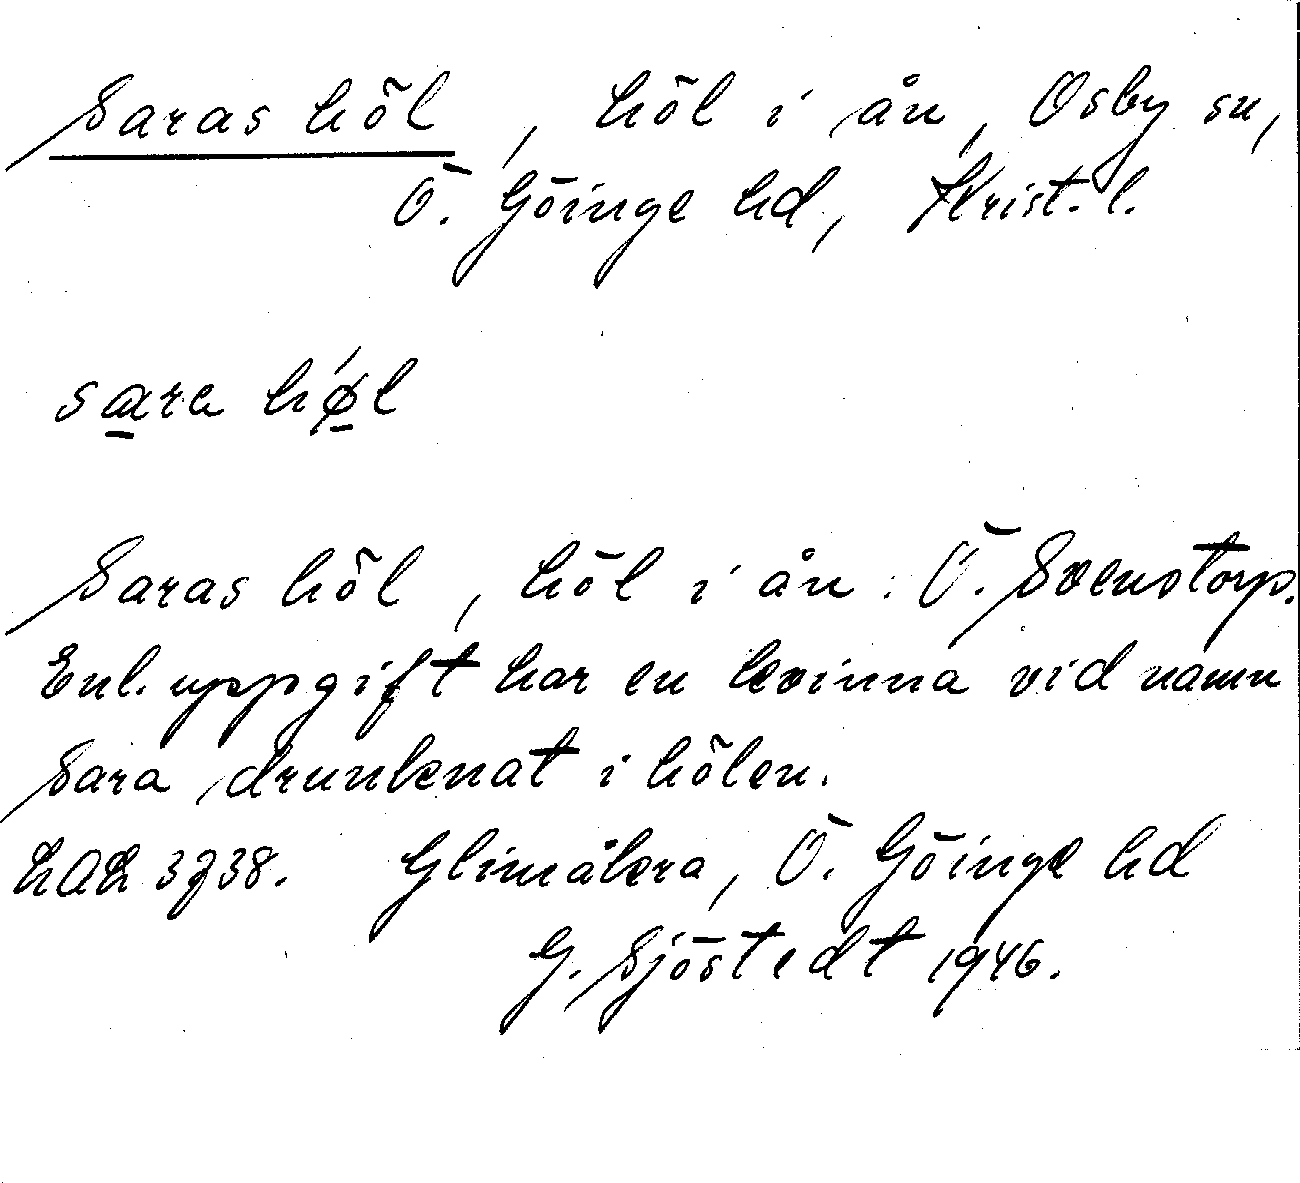 Saras höl, höl i ån, Osby sn,
Ö. Göinge hd, Krist. l.
sara hø̱l
Saras höl, höl i ån. Ö. Svenstorp.
Enl. uppgift har en kvinna vid namn
Sara drunknat i hölen.
LAL 3738. Glimåkra, Ö. Göinge hd
G. Sjöstedt 1946.